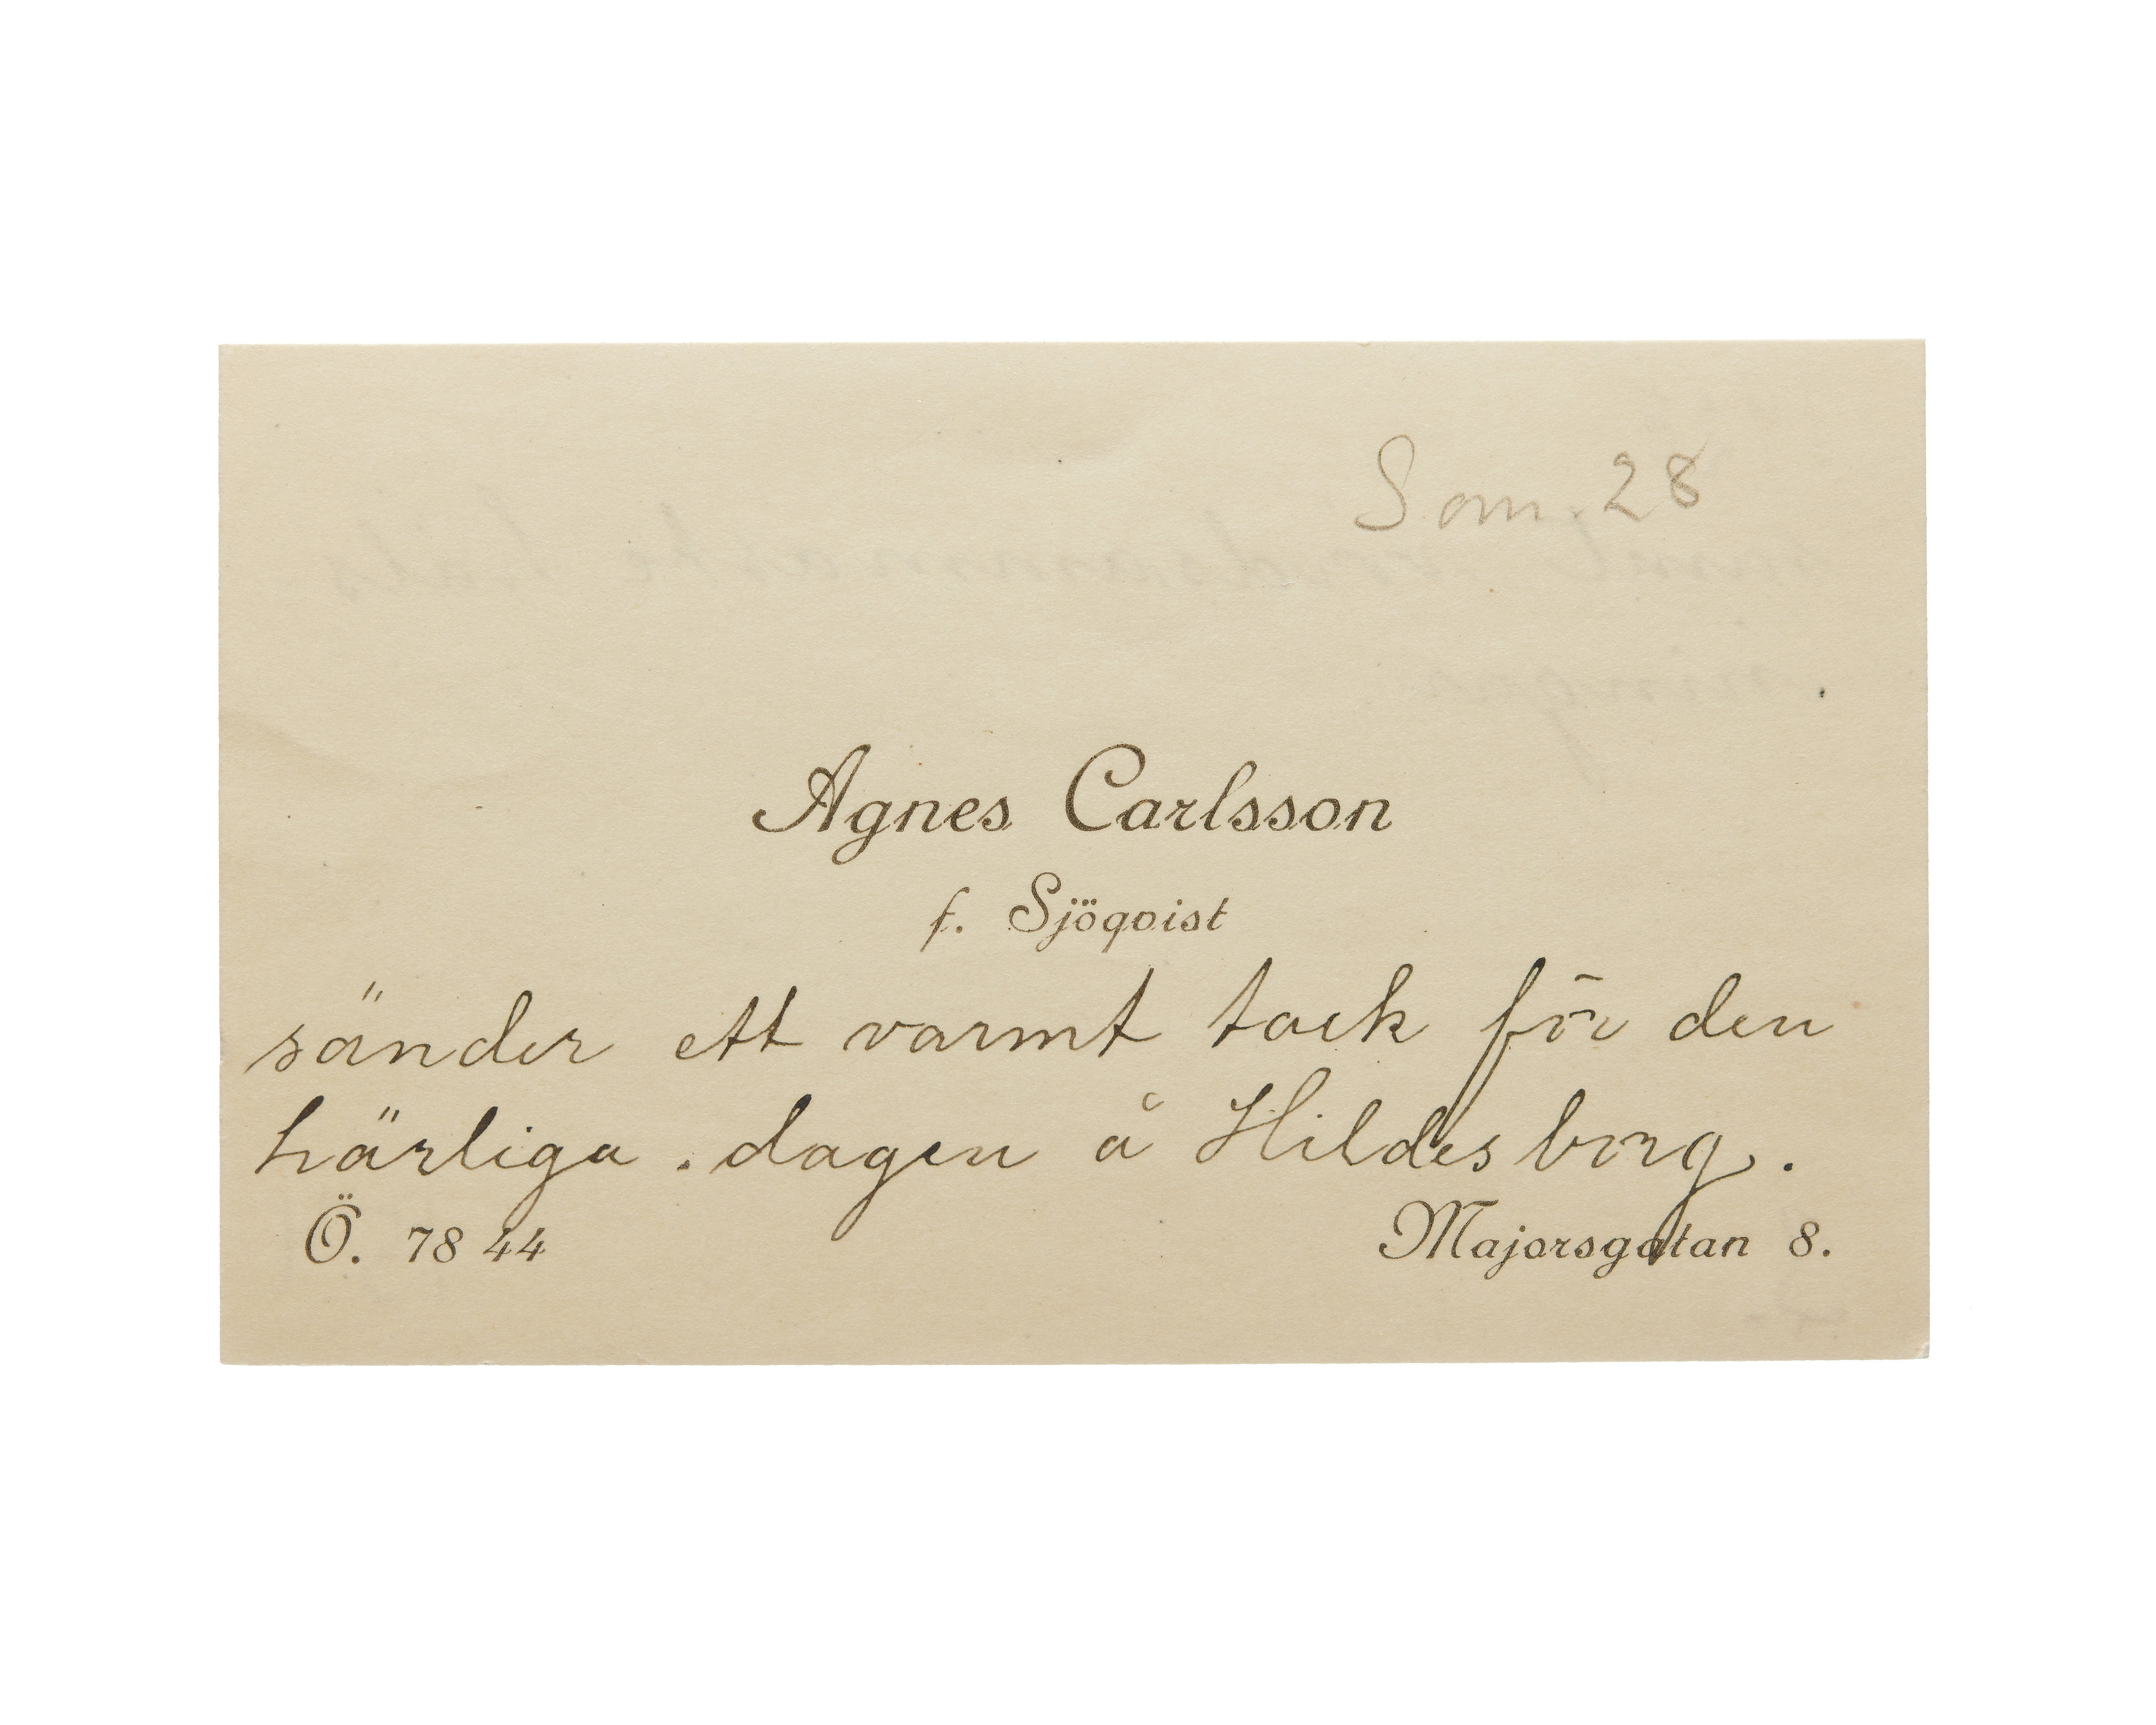 Som. 28
Agnes Carlsson
f. Sjöqvist
sänder ett varmt tack för den
härliga . dagen å Hildesborg.
Ö. 78 44
Majorsgatan 8.